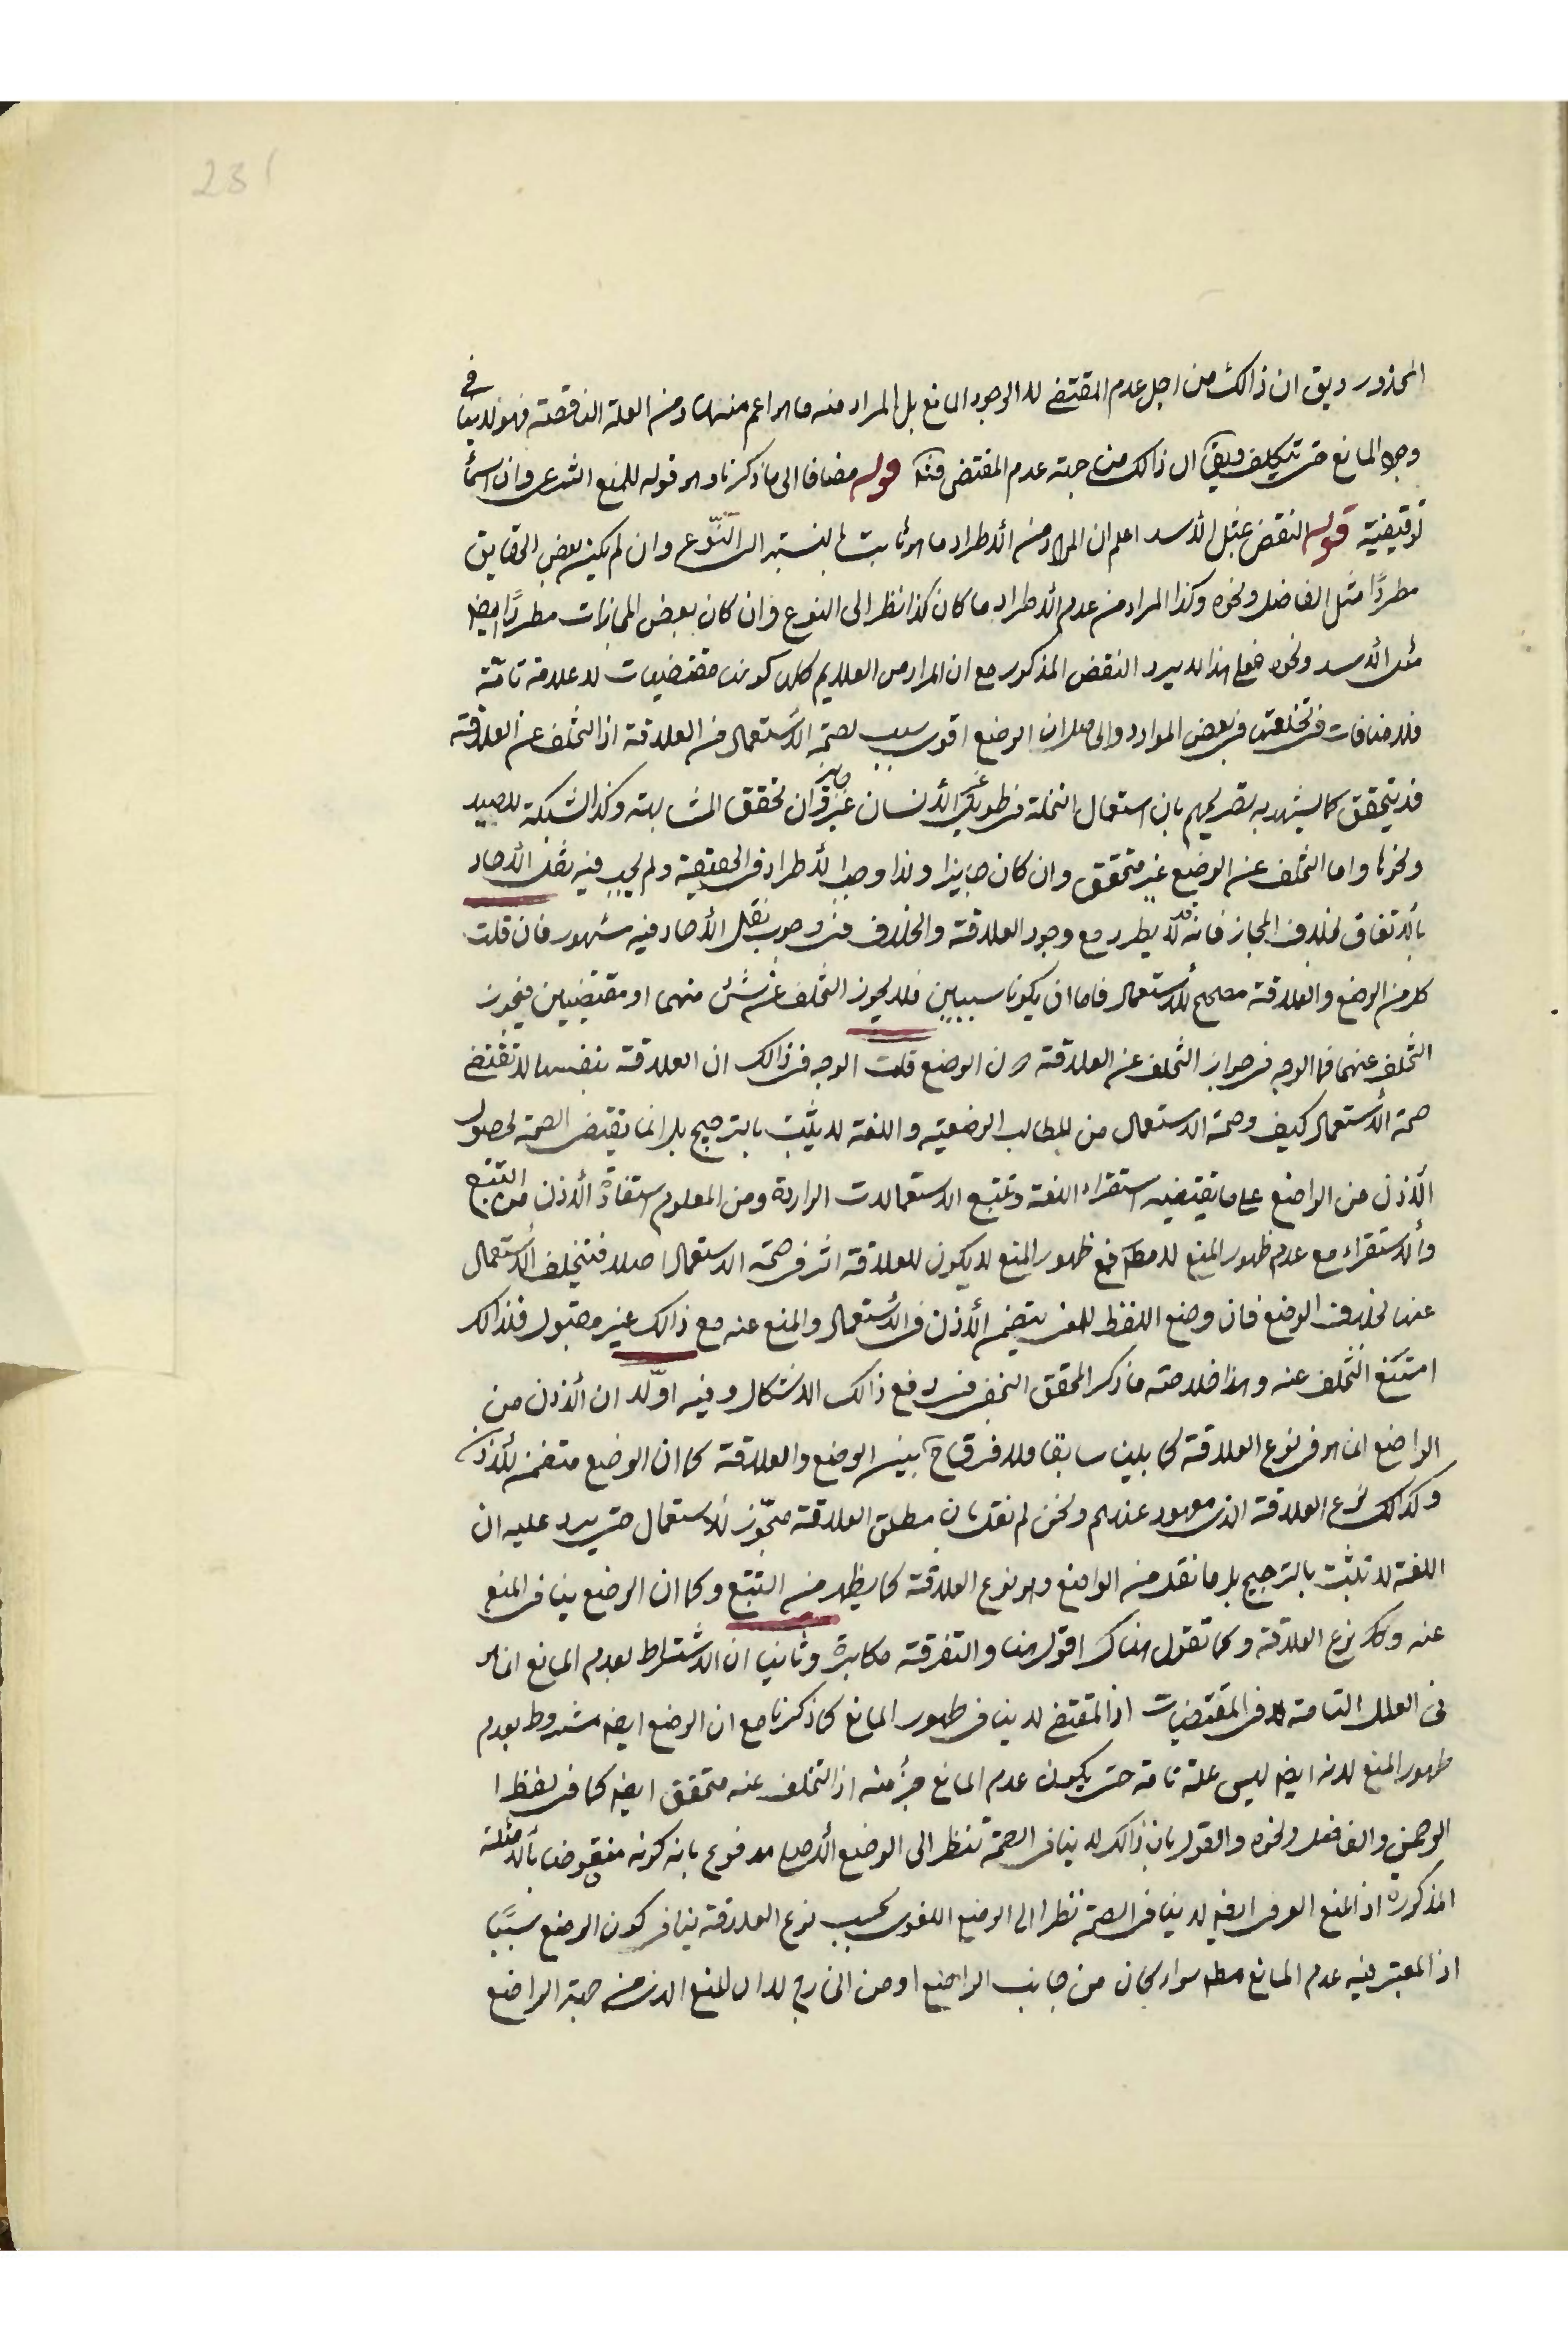 231
المحذور ويق ان ذالك من اجل عدم المقتضى لا لوجود المانع بل المراد منه ما هو اعم منها ومن العلة الناقصة فهو لا ينافي
وجود المانع حتى يتكلف ويقال ان ذالك من جهة عدم المقتضى فتد قوله مضافا الى ما ذكرنا وهو قوله للمنع الشرعى وان اسمائه
توقيفية قوله النقض بمثل الأسد اعلم ان المراد من الأطراد ما هو ثابت بالنسبة الى النّوع وان لم يكن بعض الحقايق
مطردًا مثل الفاضل ونحوه وكذا المراد من عدم الأطراد ما كان كذا نظر الى النوع وان كان بعض المجازات مطردًا ايضا
مثل الأسد ونحوه فعلى هذا لا يرد النقض المذكور مع ان المراد من العلايم كلها كونها مقتضيات لا علامة تامّة
فلا منافات فى تخلفها فى بعض الموارد والحاصل ان الوضع اقوى سبب لصحّة الأستعمال من العلاقة اذ التخلف عن العلاقة
قد يتحقق كما يشهد به تصريحهم بان استعمال النخلة فى طويل غير الأنسان غير جايز وان تحقق المشابهة وكذا الشبكة للصيد
ونحوها واما التخلف عن الوضع غير متحقق وان كان جايزا ولذا وجب الأطراد فى الحقيقة ولم يجب فيه نقل الأحاد
بالأتفاق بخلاف المجاز فانه قد لا يطرد مع وجود العلاقة والخلاف فى وجوب نقل الأحاد فيه مشهور فان قلت
كل من الوضع والعلاقة مصحح للأستعمال فاما ان يكونا سببين فلا يجوز التخلف عن شئ منهما او مقتضيين فيجوز
التخلف عنهما فما الوجه فى جواز التخلف عن العلاقة دون الوضع قلت الوجه فى ذالك ان العلاقة بنفسها لا تقتضى
صحة الأستعمال كيف وصحة الاستعمال من المطالب الوضعية واللغة لا يثبت بالترجيح بل انما يقتضى الصحة لحصول
الأذن من الواضع على ما يقتضيه استقراء اللغة وتتبع الاستعمالات الواردة ومن المعلوم استفادة الأذن من التتبع
والأستقراء مع عدم ظهور المنع لا مطلقا فمع ظهور المنع لا يكون للعلاقة اثر فى صحّة الاستعمال اصلا فيتخلف الأستعمال
عنها بخلاف الوضع فان وضع اللفظ للمعنى يتضمن الأذن فى الأستعمال والمنع عنه مع ذالك غير معقول فلذالك
امتنع التّخلف عنه وهذا خلاصة ما ذكر المحقق النحفى فى دفع ذالك الاشكال وفيه اوّلا ان الأذن من
الواضع انما هو فى نوع العلاقة كما بينا سابقا ولا فرق ح بين الوضع والعلاقة كما ان الوضع متضمن للأذن
وكذالك نوع العلاقة الذى معهود عندهم ونحن لم نقل بان مطلق العلاقة مجّوز للاستعمال حتى يرد عليه ان
اللغة لا تثبت بالترجيح بل ما نقل من الواضع وهو نوع العلاقة كما يظهر من التتبع وكما ان الوضع ينافى المنع
عنه وكل نوع العلاقة وكما تقول هناك اقول هنا والتفرقة مكابرة وثانيا ان الاشتراط بعدم المانع انما هو
فى العلل التامة لا فى المقتضيات اذ المقتضى لا ينافى ظهور المانع كما ذكرنا مع ان الوضع ايضا مشروط بعدم
ظهور المنع لانه ايضا ليس علة تامة حتى يكون عدم المانع جزءً منه اذ التخلف عنه متحقق ايضا كما فى لفظ ا
لرحمن والفاضل ونحوه والقول بان ذالك لا ينافى الصحة تنظرا الى الوضع الأصلى مدفوع بانه كونه منقوضا بالأمثلة
المذكورة اذ المنع العرفى ايضا لا ينافى الصحة نظرا الى الوضع اللغوى بحسب نوع العلاقة ينافى كون الوضع سببًا
اذ المعتبر فيه عدم المانع مطلقا سواء كان من جانب الواضع او من الخارج لا ان المنع الذى من جهة الواضع